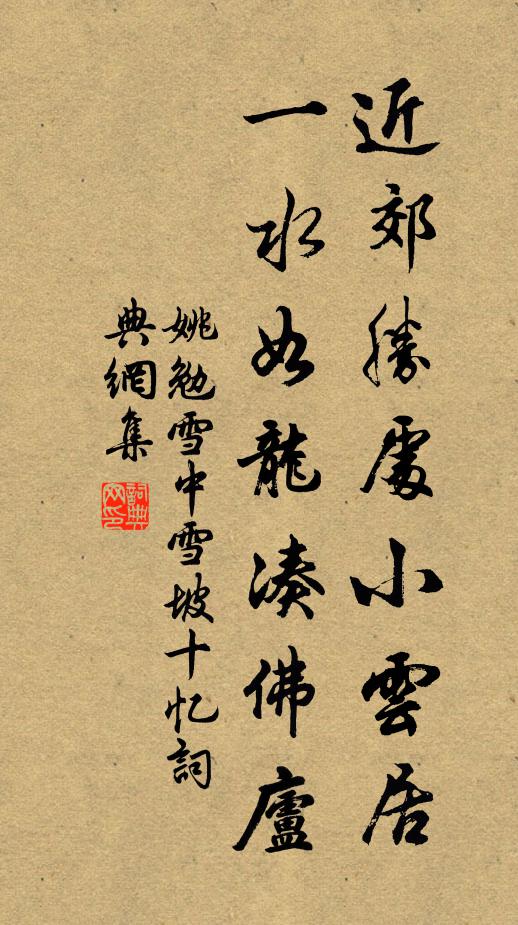 近郊勝處小雲居
一水如龍湊佛廬
姚勉雪中雪坡十忆詞
典網集
詞典
网印